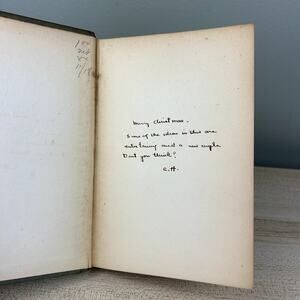 1st
xx
11/18
Merry Christmas.
Some of the ideas in this are
entertaining and a new angle.
Don't you think?
C.H.